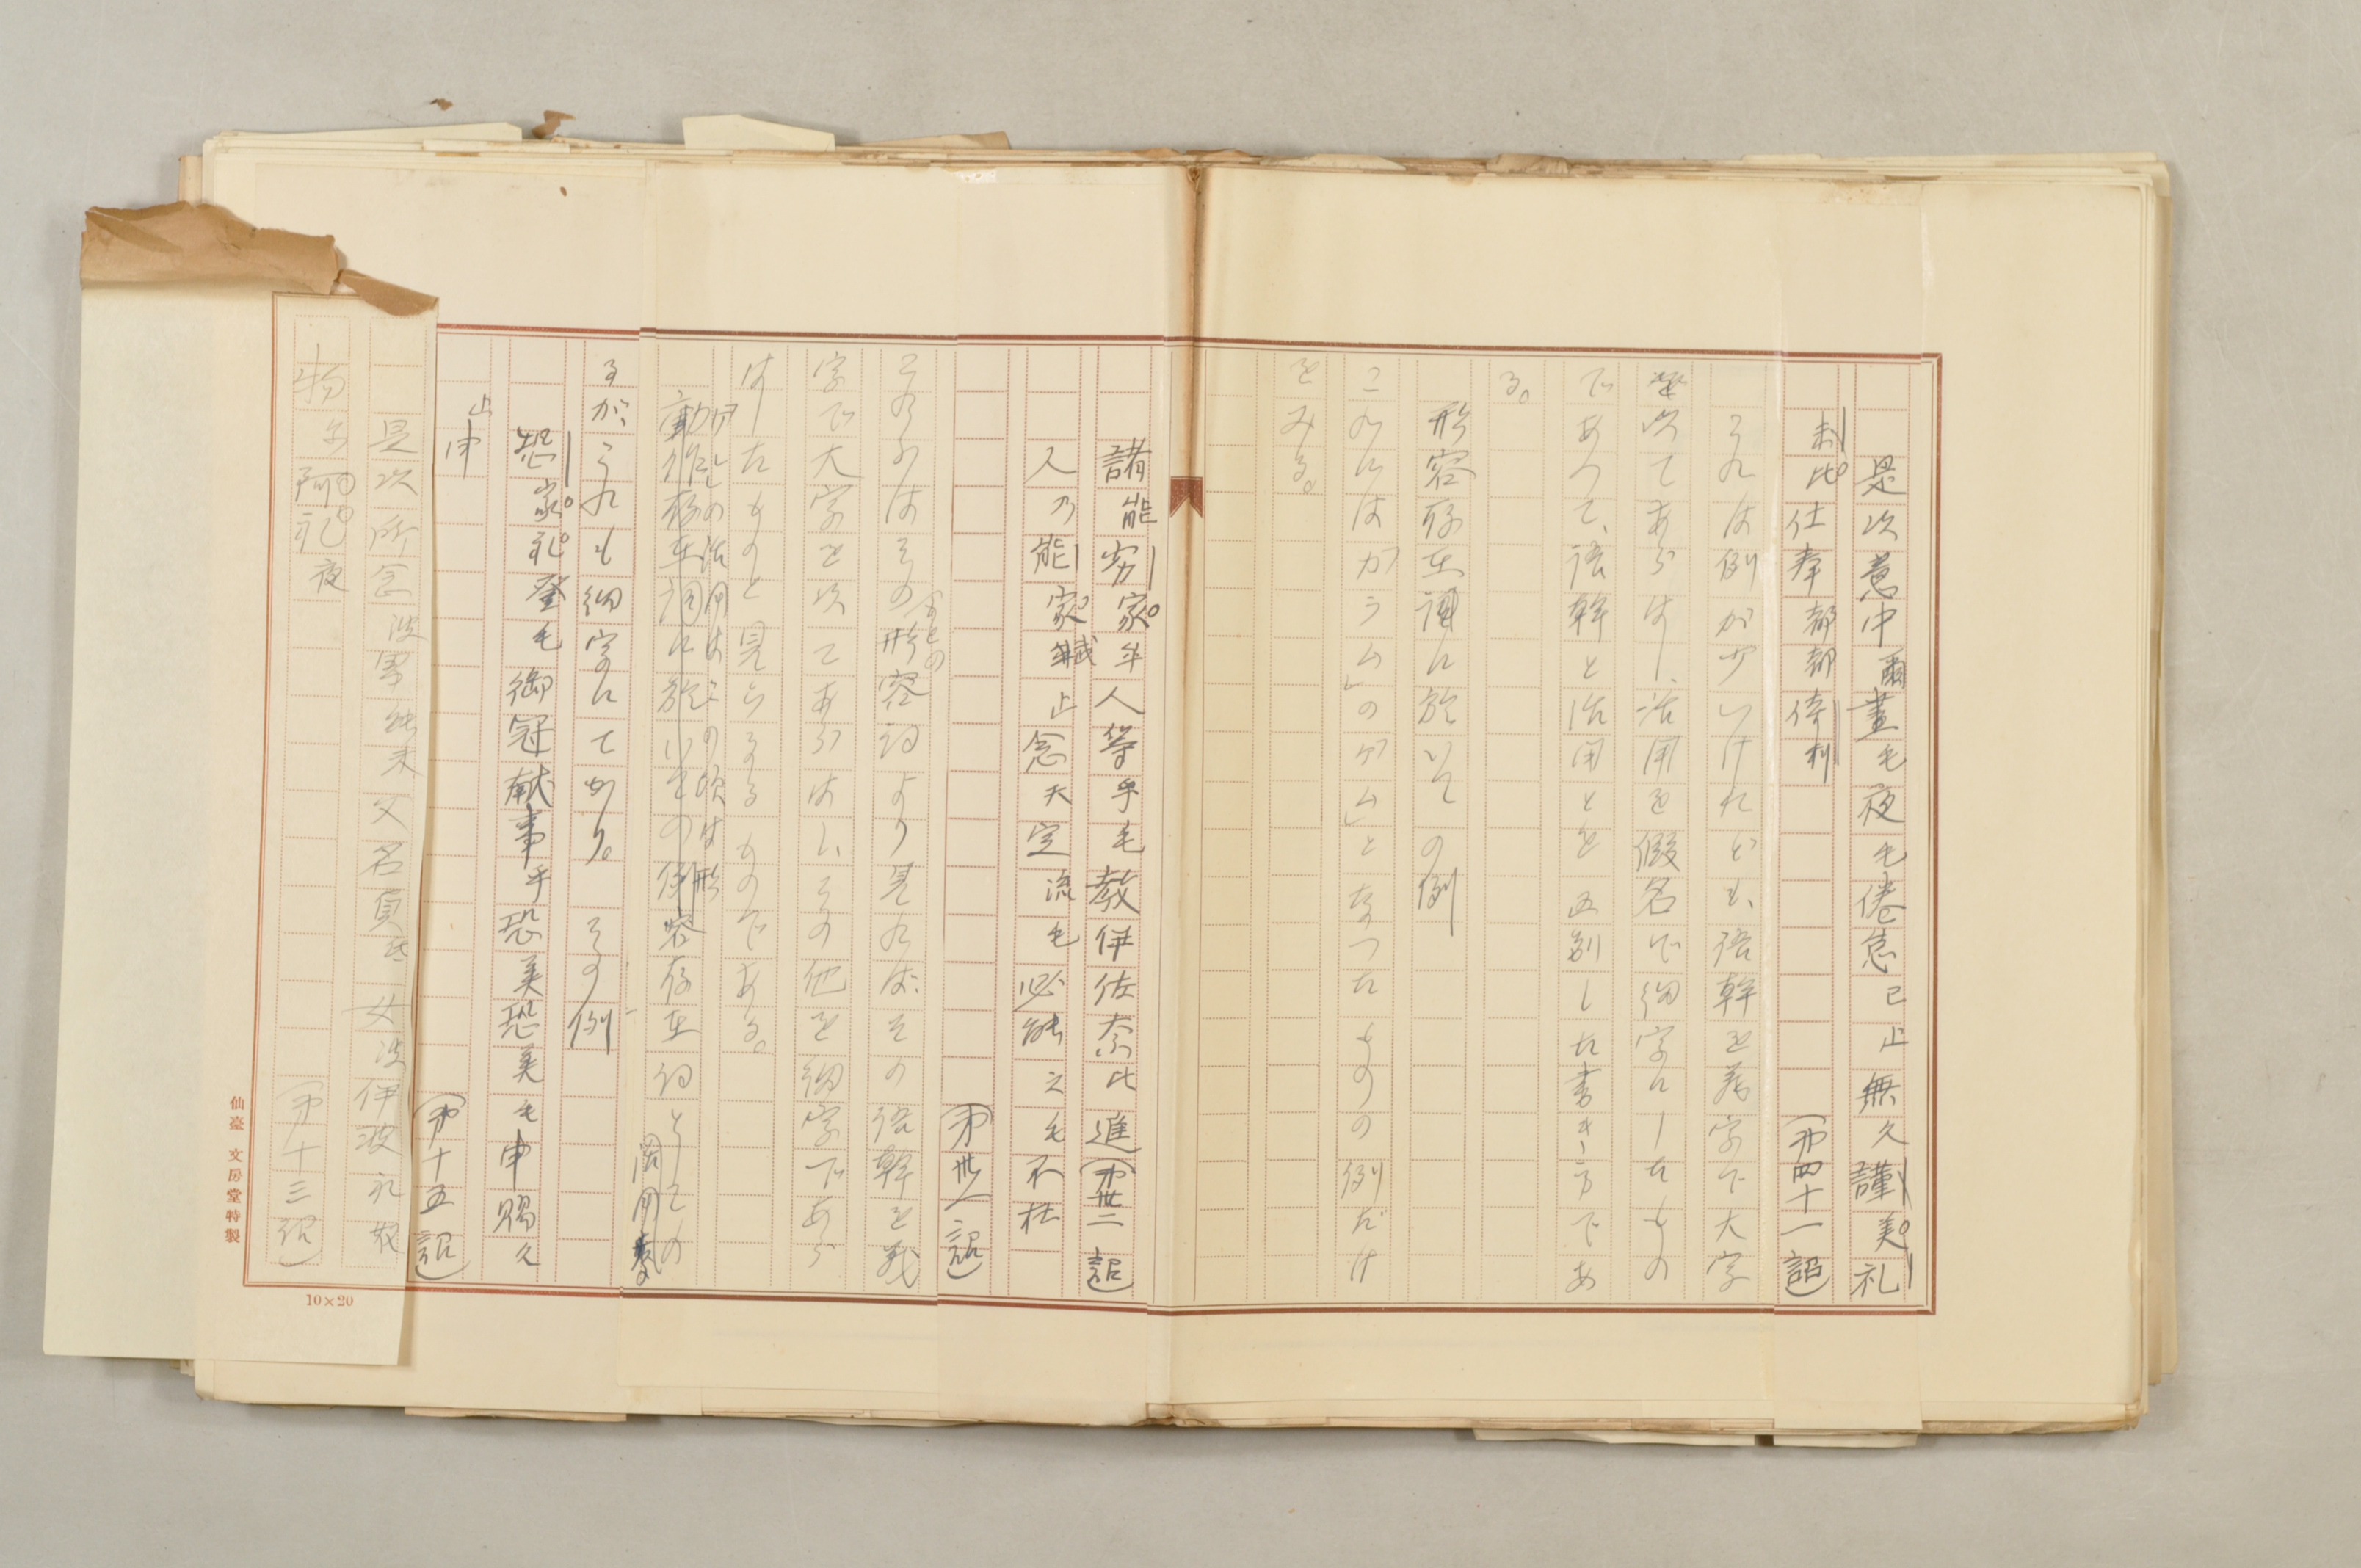 是以意中爾晝毛夜毛倦怠己止無久謹美礼
末比仕奉都都侍利　（第四十一詔）
これは例が少いけれども、語幹を義字で大字
を以てあらはし、活用を假名で細字にしたもの
であつて、語幹と活用とを区別した書き方であ
る。
形容存在詞に於いての例
これにはカラム」のケム」となつたものの例だけ
をみる。
諸能劣家牟人等乎毛教伊佐奈比進（第卅二詔）
人乃能家武止念天定流毛必能之毛不在
（第卅一詔）
これらはその形容詞より見れば、その語幹を義
字で大字を以てあらはし、その他を細字であら
はしたものと見らるるものである。
形容存在詞としての
るが、これも細字にてかけり。その例
恐家礼登毛御冠献事乎恐美恐美毛申賜久
止申　（第十五詔）
是以所念波男能未父名負弖女波伊波礼奴
物尓阿礼夜　（第十三詔）
仙臺 文房堂特製
10×20